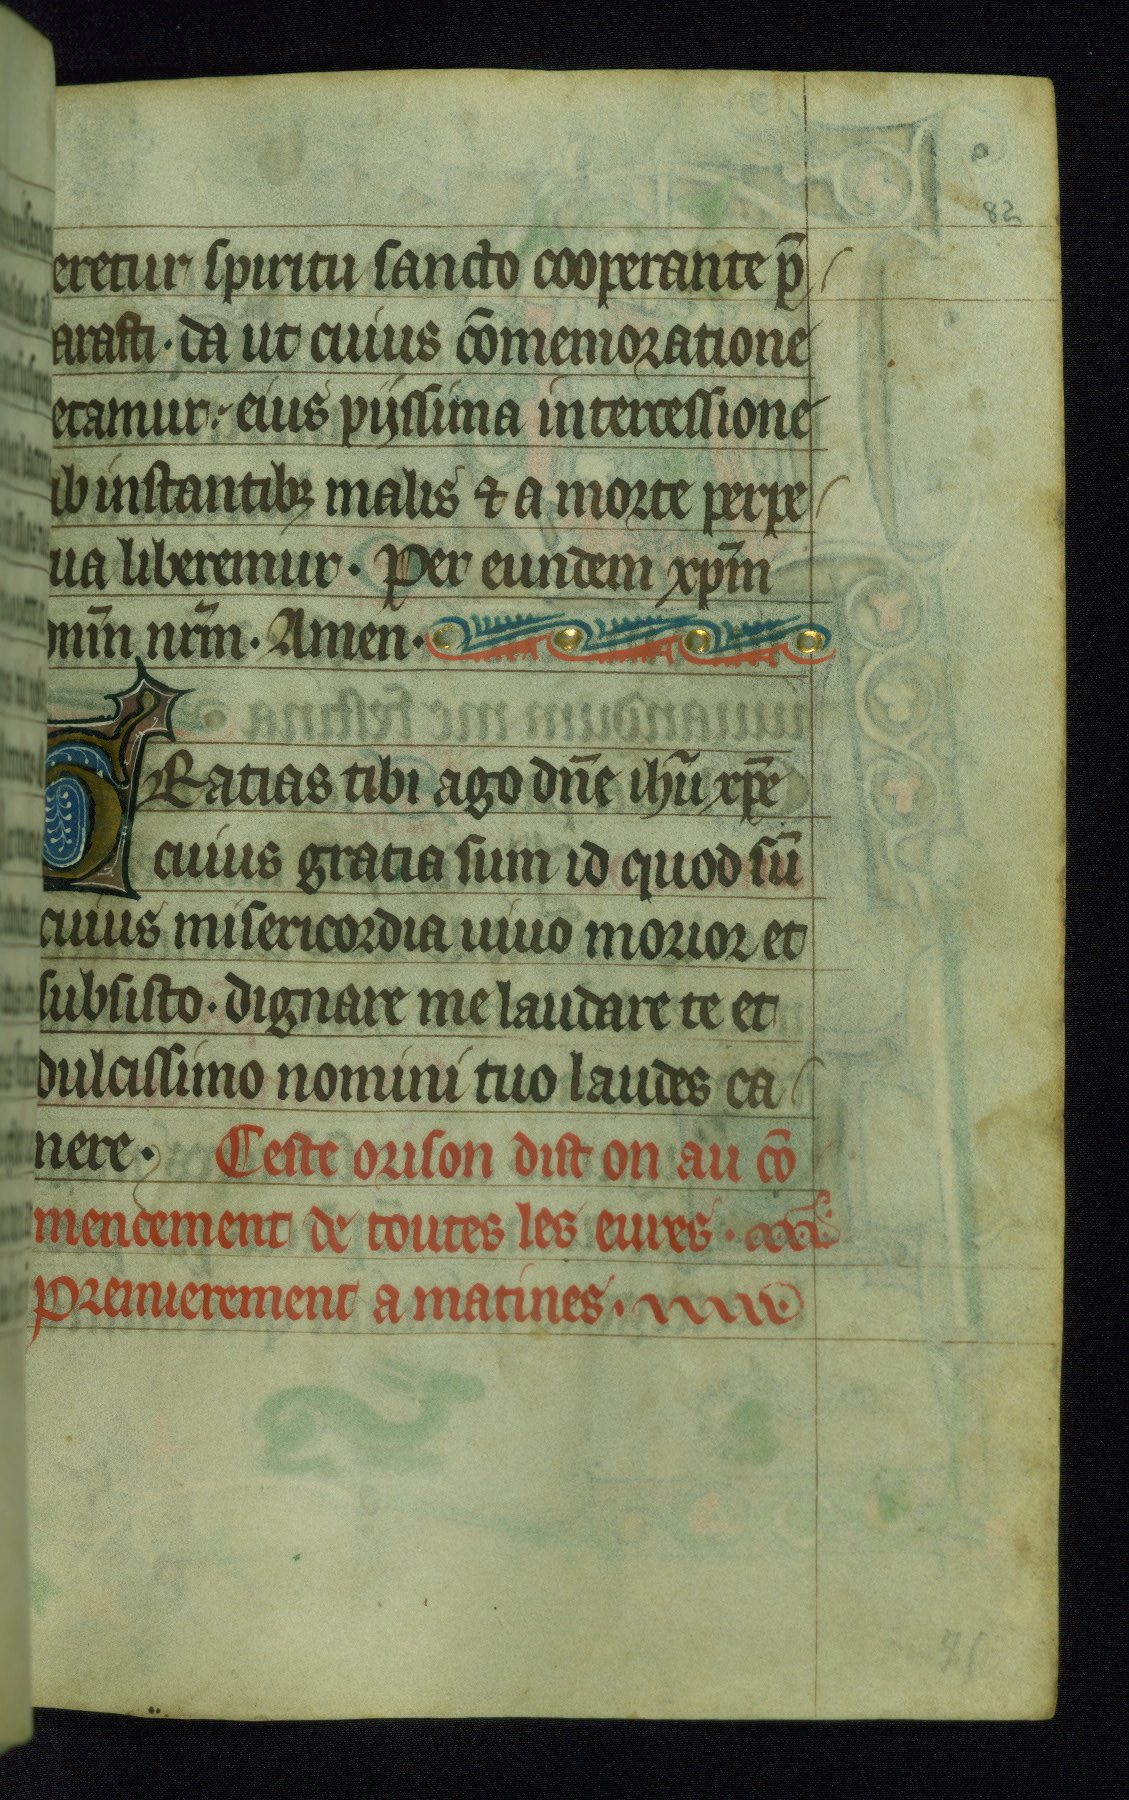 82
eretur spiritu sancto cooperante p̄
arasti · da ut cuius cōmemoratione
etamur · eius pijssima intercessione
ab instantibꝫ malis ⁊ a morte perpe
ua liberemur · Per eundem xp̄m
nr̄m · Amen ·
Ratias tibi ago dn̄e ihū xp̄e
cuius gratia sum id quod sū
cuius misericordia uiuo morior et
subsisto · dignare me laudare te et
dulcissimo nomini tuo laudes ca
nere · Ceste orison dist on au cō
mencement de toutes les eures ·
premierement a matines ·